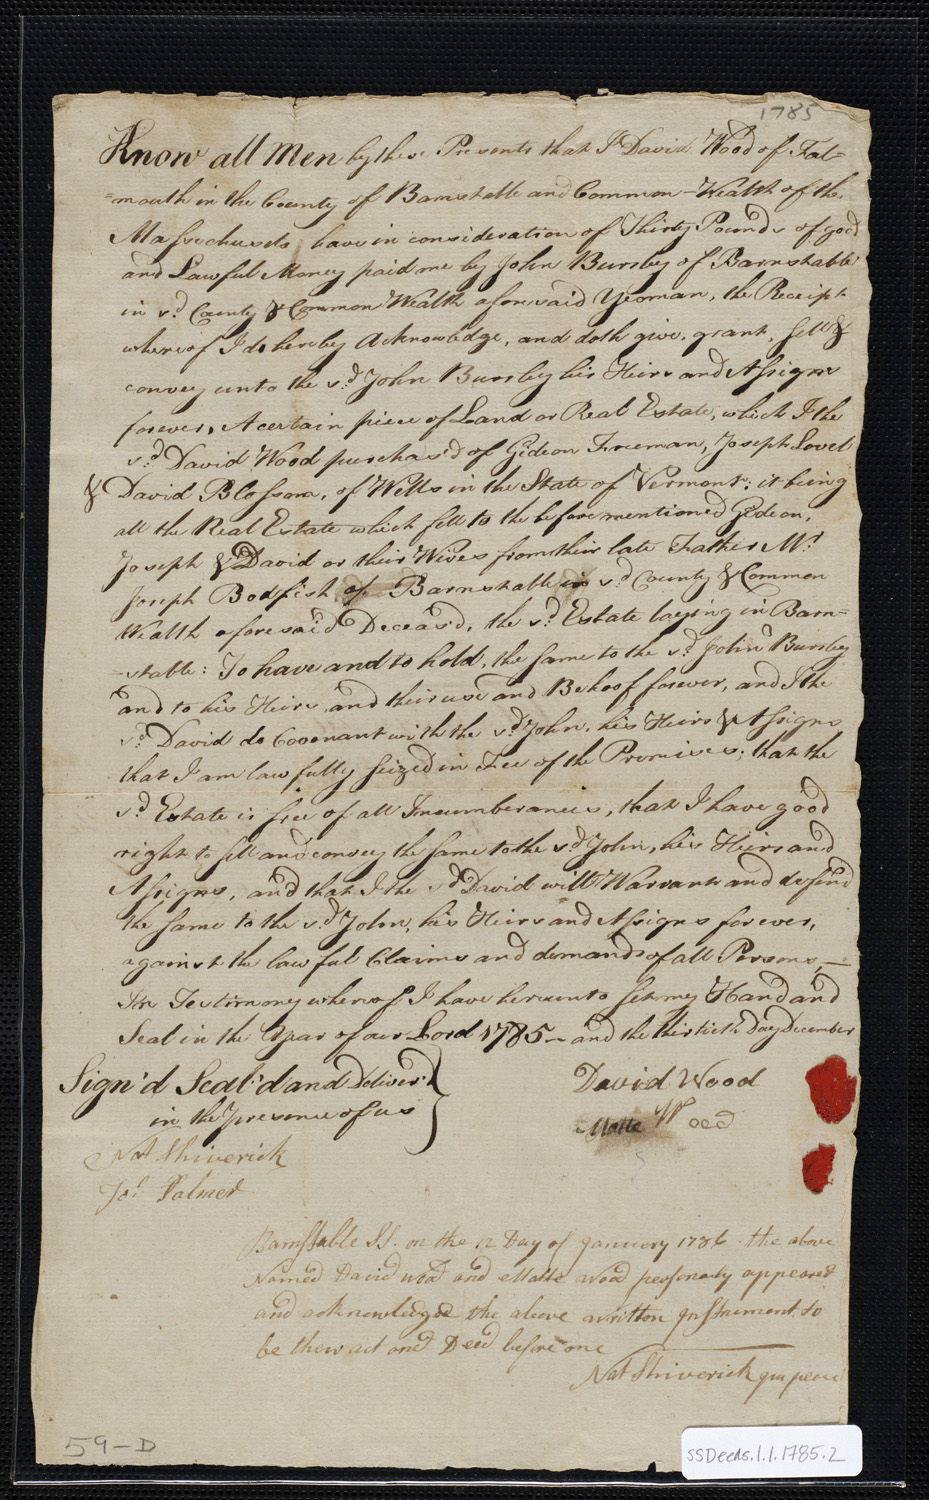 1785
Know all Men by these Presents that I David Wood of Fal=
=mouth in the County of Barnstable and Common-Wealth of the
Massachusets, have in consideration of Thirty Pounds of good
and Lawful Money paid me by John Bursley of Barnstable
in sd. County & Common Wealth aforesaid Yeoman, the Receipt
whereof I do hereby Acknowledge, and doth give, grant, sell &
convey unto the sd. John Bursley his Heirs and Assigns
forever, A certain piece of Land or Real Estate, which I the
sd. David Wood purchas'd of Gideon Freeman, Joseph Lovel
& David Blossom, of Wells in the State of Vermont: it being
all the Real Estate which fell to the beforementioned Gideon,
Joseph & David or their Wives from their late Father Mr.
Joseph Bodfish of Barnstable in sd. County & Common
Wealth aforesaid Deceas'd, the sd. Estate laying in Barn=
=stable: To have and to hold, the same to the sd. John Bursley
and to his Heirs, and their use and Behoof forever, and I the
sd. David do Covenant with the sd. John, his Heirs & Assigns
that I am lawfully seized in Fee of the Premises; that the
sd. Estate is free of all Incumberances, that I have good
right to sell and convey the same to the sd. John, his Heirs and
Assigns, and that I the sd. David will Warrant and defend
the same to the sd. John, his Heirs and Assigns forever,
against the lawful Claims and demands of all Persons,—
In Testimony whereof I have hereunto set my Hand and
Seal in the Year of our Lord 1785— and the thirtieth Day December
Sign'd Seal'd and Deliver'd
in the Presence of us
David Wood
Molle Wood
Nat Shiverick
Jos. Palmer
Barnstable SS. on the 12 Day of January 1786. the above
Named David wood and Molle wood personaly appeared
and acknowledged the above written Instrument to
be their act and Deed before me
Nat Shiverick Jus peace
59-D
SSDeeds.1.1.1785.2